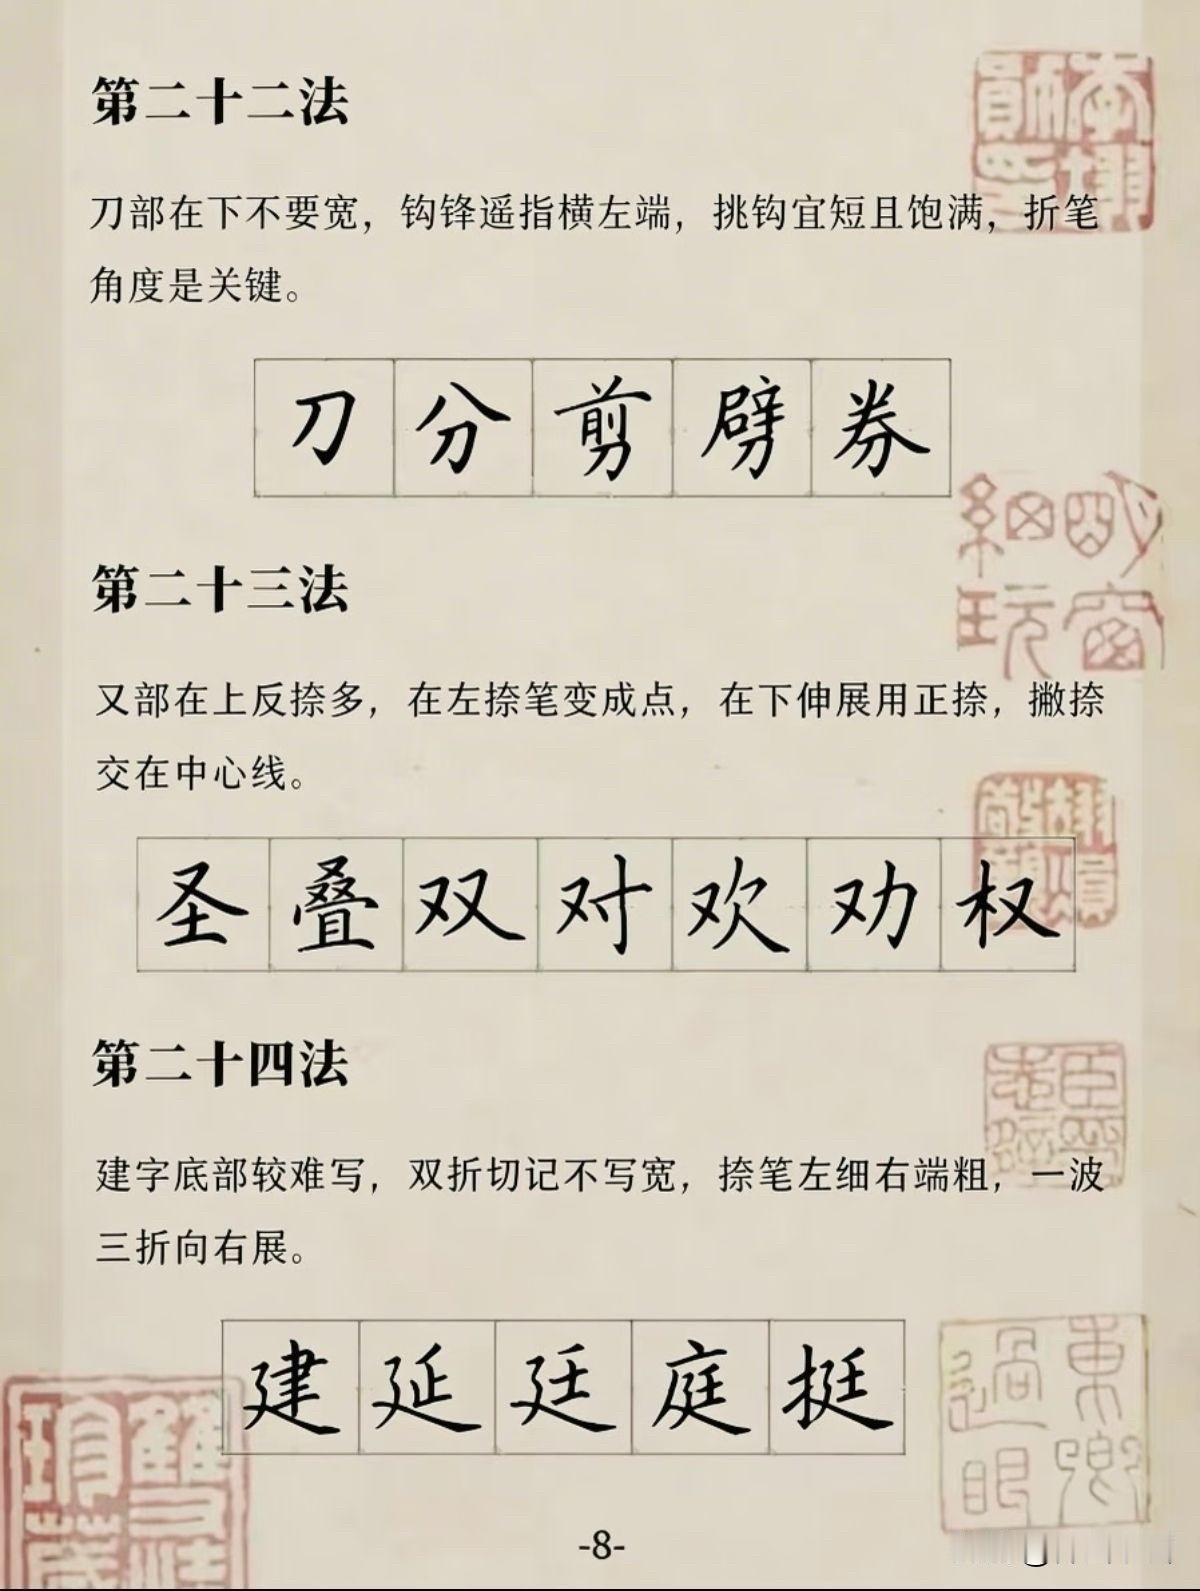 第二十二法
刀部在下不要宽，钩锋遥指横左端，挑钩宜短且饱满，折笔
角度是关键。
刀分剪劈券
第二十三法
又部在上反捺多，在左捺笔变成点，在下伸展用正捺，撇捺
交在中心线。
圣叠双对欢劝权
第二十四法
建字底部较难写，双折切记不写宽，捺笔左细右端粗，一波
三折向右展。
建延廷庭挺
-8-